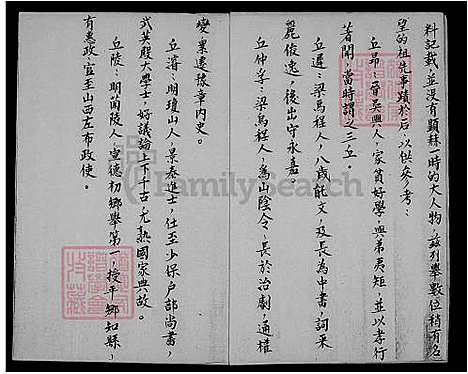 料記載，並沒有顯赫一時的大人物，茲列舉數位稍有名
望的祖先事蹟於后，以供參考：
丘昂：晉吳興人，家貧好學，與弟夷矩，並以孝行
著聞，當時謂之二丘。
丘遲：梁烏程人，八歲能文，及長為中書，詞采
麗俊逸，後出守永嘉
丘仲孚：梁烏程人，為山陰令，長於治劇，適權
變，累遷豫章內史。
丘濬：明瓊山人，景泰進士，仕至少保戶部尚書，
武英殿大學士，好議論上下千古，尤熟國家典故。
丘陵：明蘭陵人，宣德初鄉舉第一，授平鄉知縣，
有惠政，官至山西左布政使。
FamilySearch